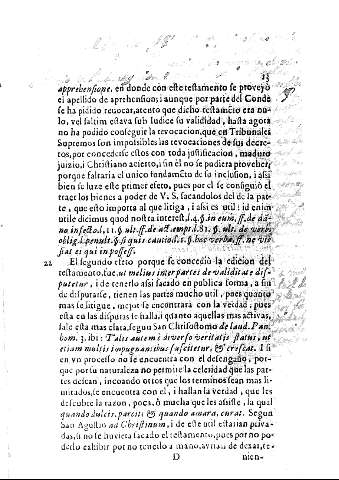 13
apprehensione, en donde con este testamento se proveyò
el apellido de aprehension; i aunque por parte del Conde
se ha pidido revocar, atento que dicho testamẽto era nu-
lo, vel saltim estava sub Iudice su valididad, hasta agora
no ha podido conseguir la revocacion, que en Tribunales
Supremos son impossibles las revocaciones de sus decre-
tos, por concederse estos con toda justificacion, maduro
juizio, i Christiano acierto, i ãn el no se pudiera proveher,
porque faltaria el unico fundamẽto de su inclusion, i assi
bien se luze este primer efeto, pues por el se consiguiò el
traer los bienes a poder de V. S. sacandolos del de la par-
te, que esto importa al que litiga, i assi es util: id enim
utile dicimus quod nostra interest, l. 4. §. in eum, ff. de dã-
no infecto, l. 11. § ult. ff. de act. empt. l. 81. §. ult. de verb.
oblig. l. penult. §. si quis cautiod. l. 1. §. hoc verbo, ff. ne vis
fiat ei qui in possess.
22 El segundo efeto porque se concediò la edicion del
testamento, fue, ut melius inter partes de validitate dis-
putetur, i de tenerlo assi en publica forma, a fin
de disputarse, tienen las partes mucho util, pues quanto
mas se litigue, mejor se encontrara con la verdad; pues
esta en las disputas se halla, i quanto aquellas mas activas,
sale esta mas clara, segun San Chrisostomo de laud. Pau.
hom. 3. ibi: Talis autem à diverso veritatis status, ut
etiam multis impugnantibus suscitetur, & crescat. I si
en vn processo no se encuentra con el desengaño, por-
que por su naturaleza no permite la celeridad que las par-
tes desean, incoando otros que los terminos sean mas li-
mitados, se encuentra con el, i hallan la verdad, que les
descubre la razon, poca, ò mucha que les assiste, la qual
quando dulcis, parcit; & quando amara, curat. Segun
San Agustin ad Christinum, i de este util estarian priva-
das, si no se huviera sacado el testamento, pues por no po-
derlo exhibir por no tenerlo a mano, avrian de dexar, si
D nien-